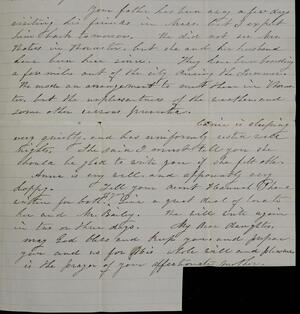 Your father has been away a few days
visiting his friends in Mass. but I expect
him back tomorrow. We did not see Mr.
Bates in Worcester, but she and her husband
have been here since. They have been boarding
a few miles out of the city during the summer.
We made an arrangement to meet them in
but the unpleasantness of the weather and
some other reasons prevented.
is sleeping
very quietly, and has uniformly rested well
nights. She said I must tell you she
should be glad to write you if she felt able.
Anna is very well and apparently very
happy. Tell your aunt Hannah I have
written for both. Give a great deal of love to
her and Mr. Baily. We will write again
in two or three days. My dear daughter,
may God bless and keep you, and prepare
you and us for His holy will and pleasure
is the prayer of your affectionate mother.